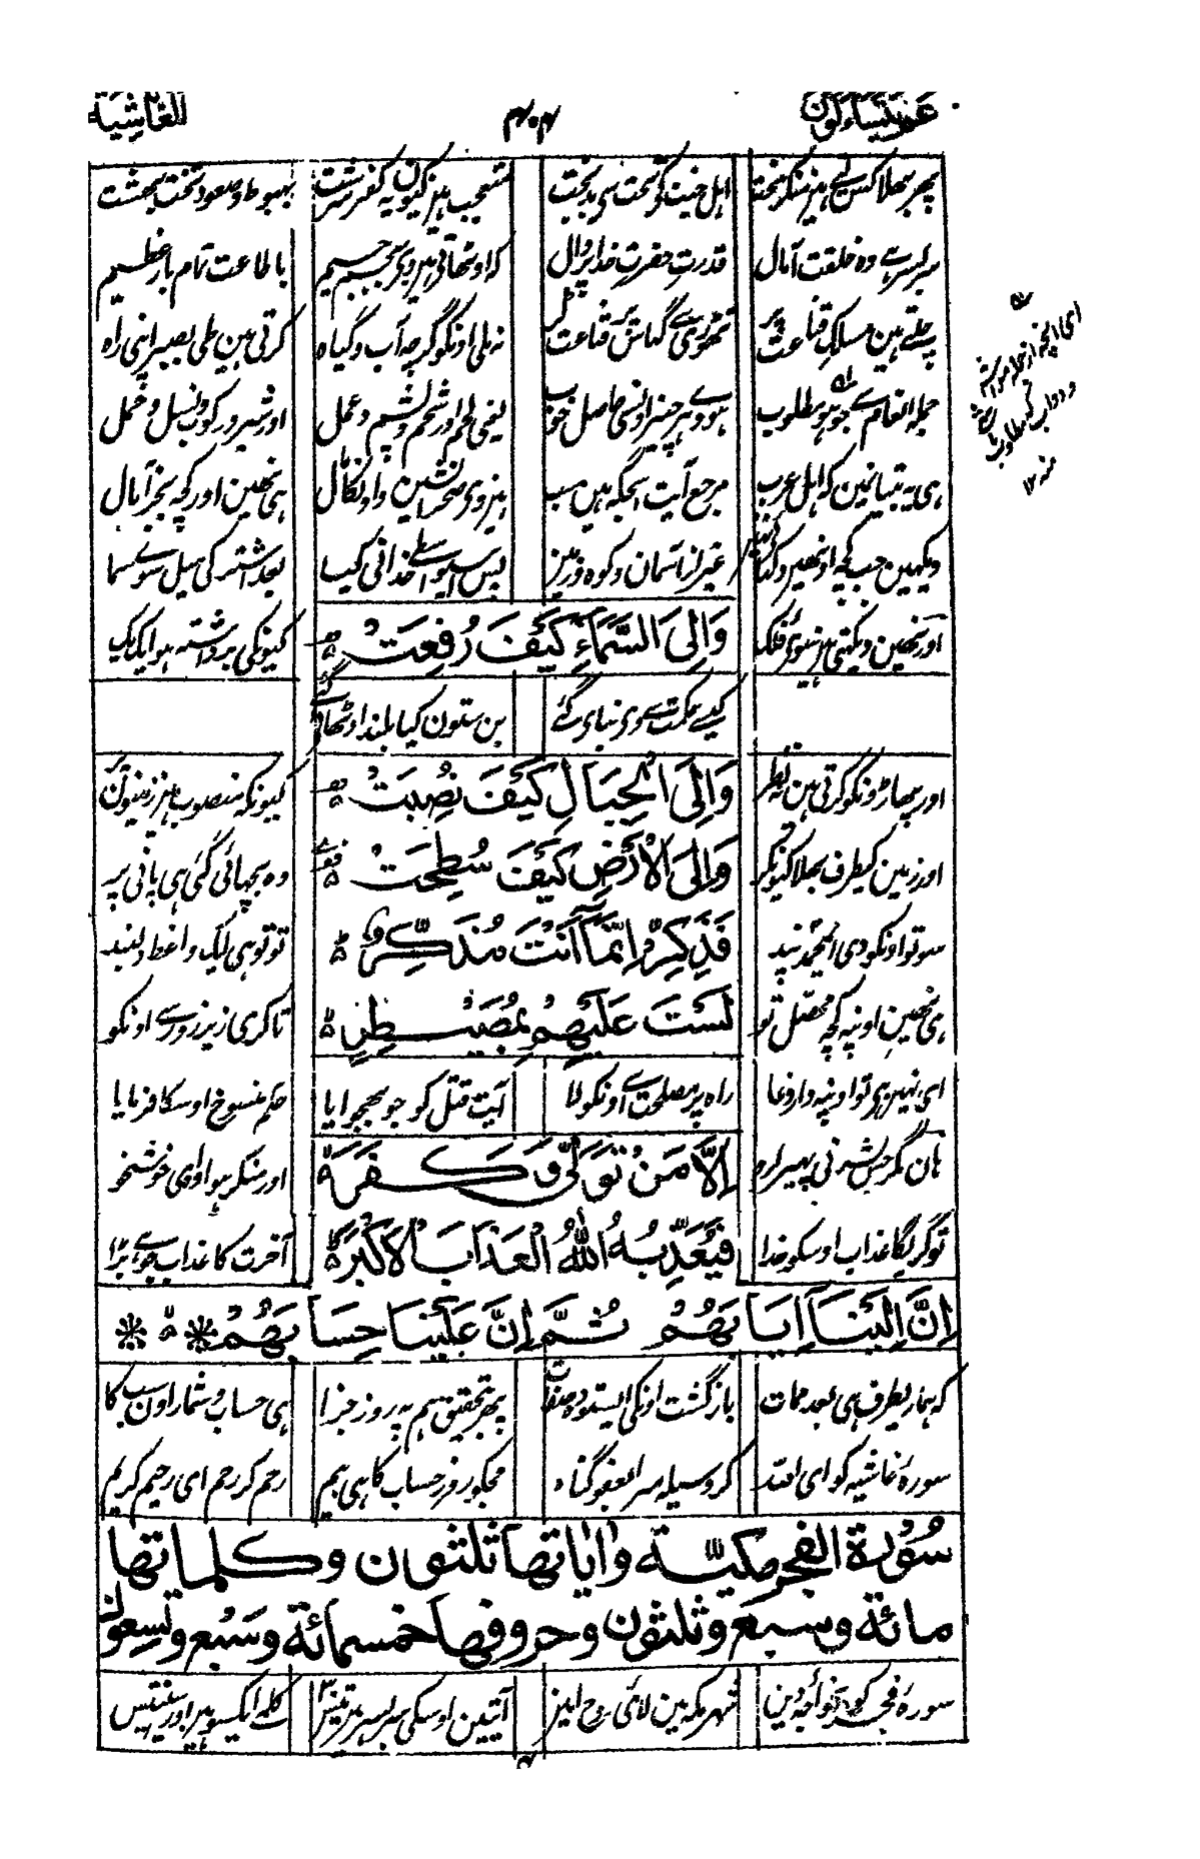 عم يتساءلون ۴۰۴ الغاشية
پھر بھلا کس لیے ہین منکر سخت اہل جنت کو تخت سی بدبخت متعجب ہین کیون یہ کفر سرشت ہبوط و صعود تخت بہشت
سربسر ہے وہ خلقت آمال قدرت حضرت خداے زوال کہ اوٹھاتی ہین وی جسیم باطاعت تمام بار عظیم
چلتے ہین مسلک قناعت پر تھوڑی سے گھاس پر قناعت کر نہ ملی اونکو گرچہ آب و گیاہ کرتی ہین طی بصبر اپنی راہ
جملہ انعام سے جو ہو مطلوب ہووے ہر چیز اونسی حاصل خوب یعنی لحم اور شحم و پشم و عمل اور شیر و رکوب و نسل و حمل
ہی یہ تبیانین کہ اہل عرب مرجع آیت اسجگہ ہین سب ہین وی صحرانشین و اونکا مال ہی نھین اور کچھ بجز آمال
دیکھین جب کچھ اونھین دکھائی غیر از آسمان و کوہ و زمین پس اسیواسطے خدانی کیا بعد اشتر کی میل سوی سما
اور نھین دیکھتی ہین سوی فلک وَاِلَى السَّمَآءِ كَيْفَ رُفِعَتْ کیونکی برداشتہ ہوا یک یک
کیسے حکمت سے وی بنای گئے بن ستون کیا بلند اوٹھای گئے
اور پھاڑونکو کرتی ہین نہ نظر وَاِلَى الْجِبَالِ كَيْفَ نُصِبَتْ کیونکہ منصوب ہین زمینون پر
اور زمین کیطرف بھلا کیونکر وَاِلَى الْاَرْضِ كَيْفَ سُطِحَتْ وہ بچھائی گئی ہی پانی پر
سو تو اونکو دی ای محمد پند فَذَكِّرْ اِنَّمَآ اَنْتَ مُذَكِّرٌ تو تو ہی لیک واعظ دلبند
ہی نھین اونپہ کچھ محصل تو لَسْتَ عَلَيْهِمْ بِمُصَيْطِرٍ تا کری زیر زور سے اونکو
ای نہین ہی تو اونپہ داروغا راہ پر مصلحت سے اونکو لا آیت قتل کو جو بھجوایا حکم منسوخ اوسکا فرمایا
ہان مگر جس بشر نی پھیرا رو اِلَّا مَنْ تَوَلّٰى وَكَفَرَ اور منکر ہوا وای خوشخو
تو کریگا عذاب اوسکو خدا فَيُعَذِّبُهُ اللّٰهُ الْعَذَابَ الْاَكْبَرَ آخرت کا عذاب جو ہے بڑا
اِنَّ اِلَيْنَآ اِيَابَهُمْ ثُمَّ اِنَّ عَلَيْنَا حِسَابَهُمْ
کہ ہماریطرف ہی بعد ممات بازگشت اونکی ای ستودہ صفات پھر بتحقیق ہم پہ روز جزا ہی حساب و شمار اون سب کا
سورۂ غاشیہ کو ای اللہ کر وسیلہ مرا بعفو گناہ مجکو روز حساب کا ہی بیم رحم کر رحم ای رحیم کریم
سورة الفجر مكيّة واياتها ثلثون وكلماتها
مائة وسبع وثلثون وحروفها خمسمائة وسبع وتسعون
سورۂ فجر کو تو ای حق بین شہر مکہ مین لائی روح امین آیتین اوسکی سربسر ہین تیس کلمے ایکسو ہین اور سینتیس